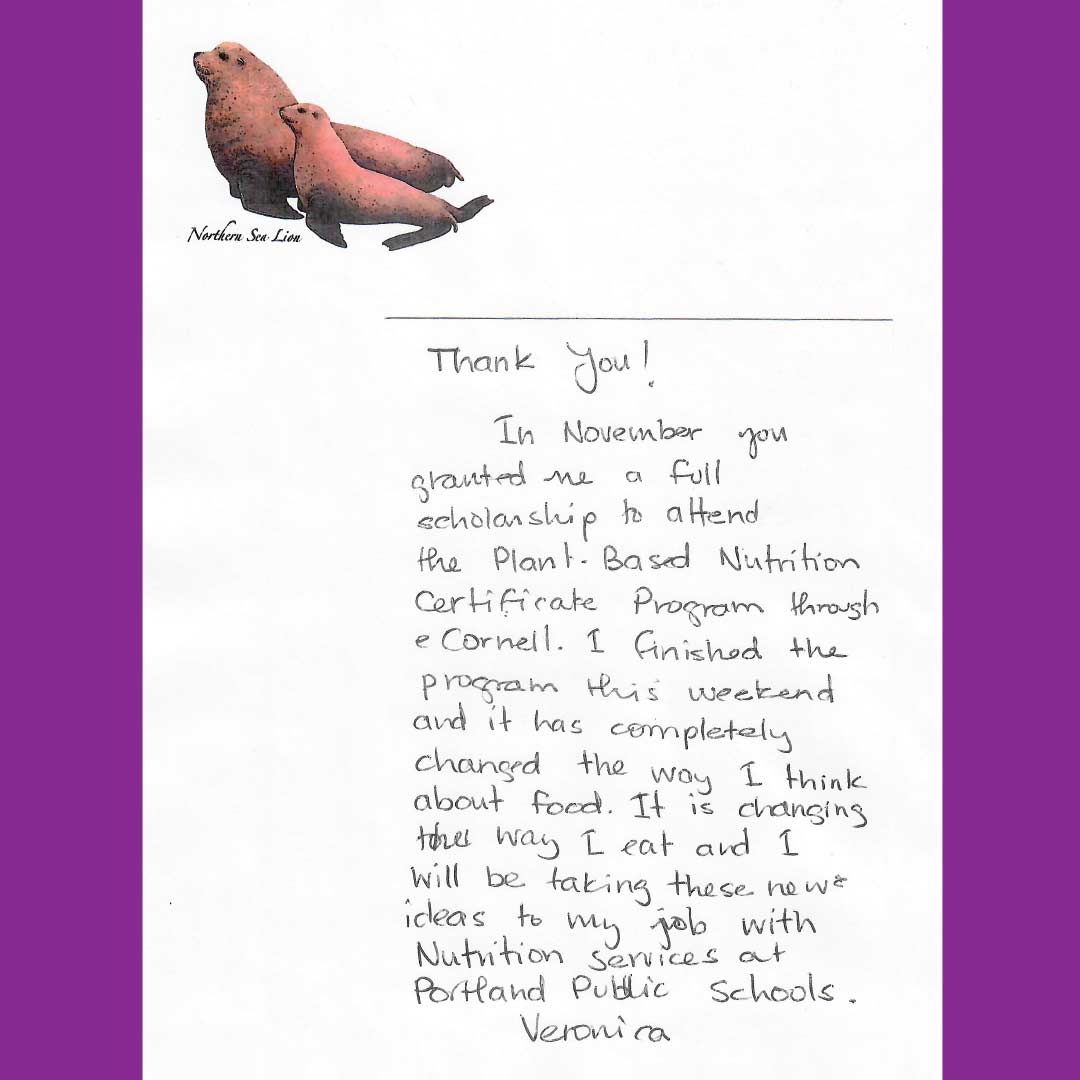 Northern Sea Lion
Thank You!
In November you
granted me a full
scholarship to attend
the Plant-Based Nutrition
Certificate Program through
eCornell. I finished the
program this weekend
and it has completely
changed the way I think
about food. It is changing
the way I eat and I
will be taking these new
ideas to my job with
Nutrition services at
Portland Public Schools.
Veronica